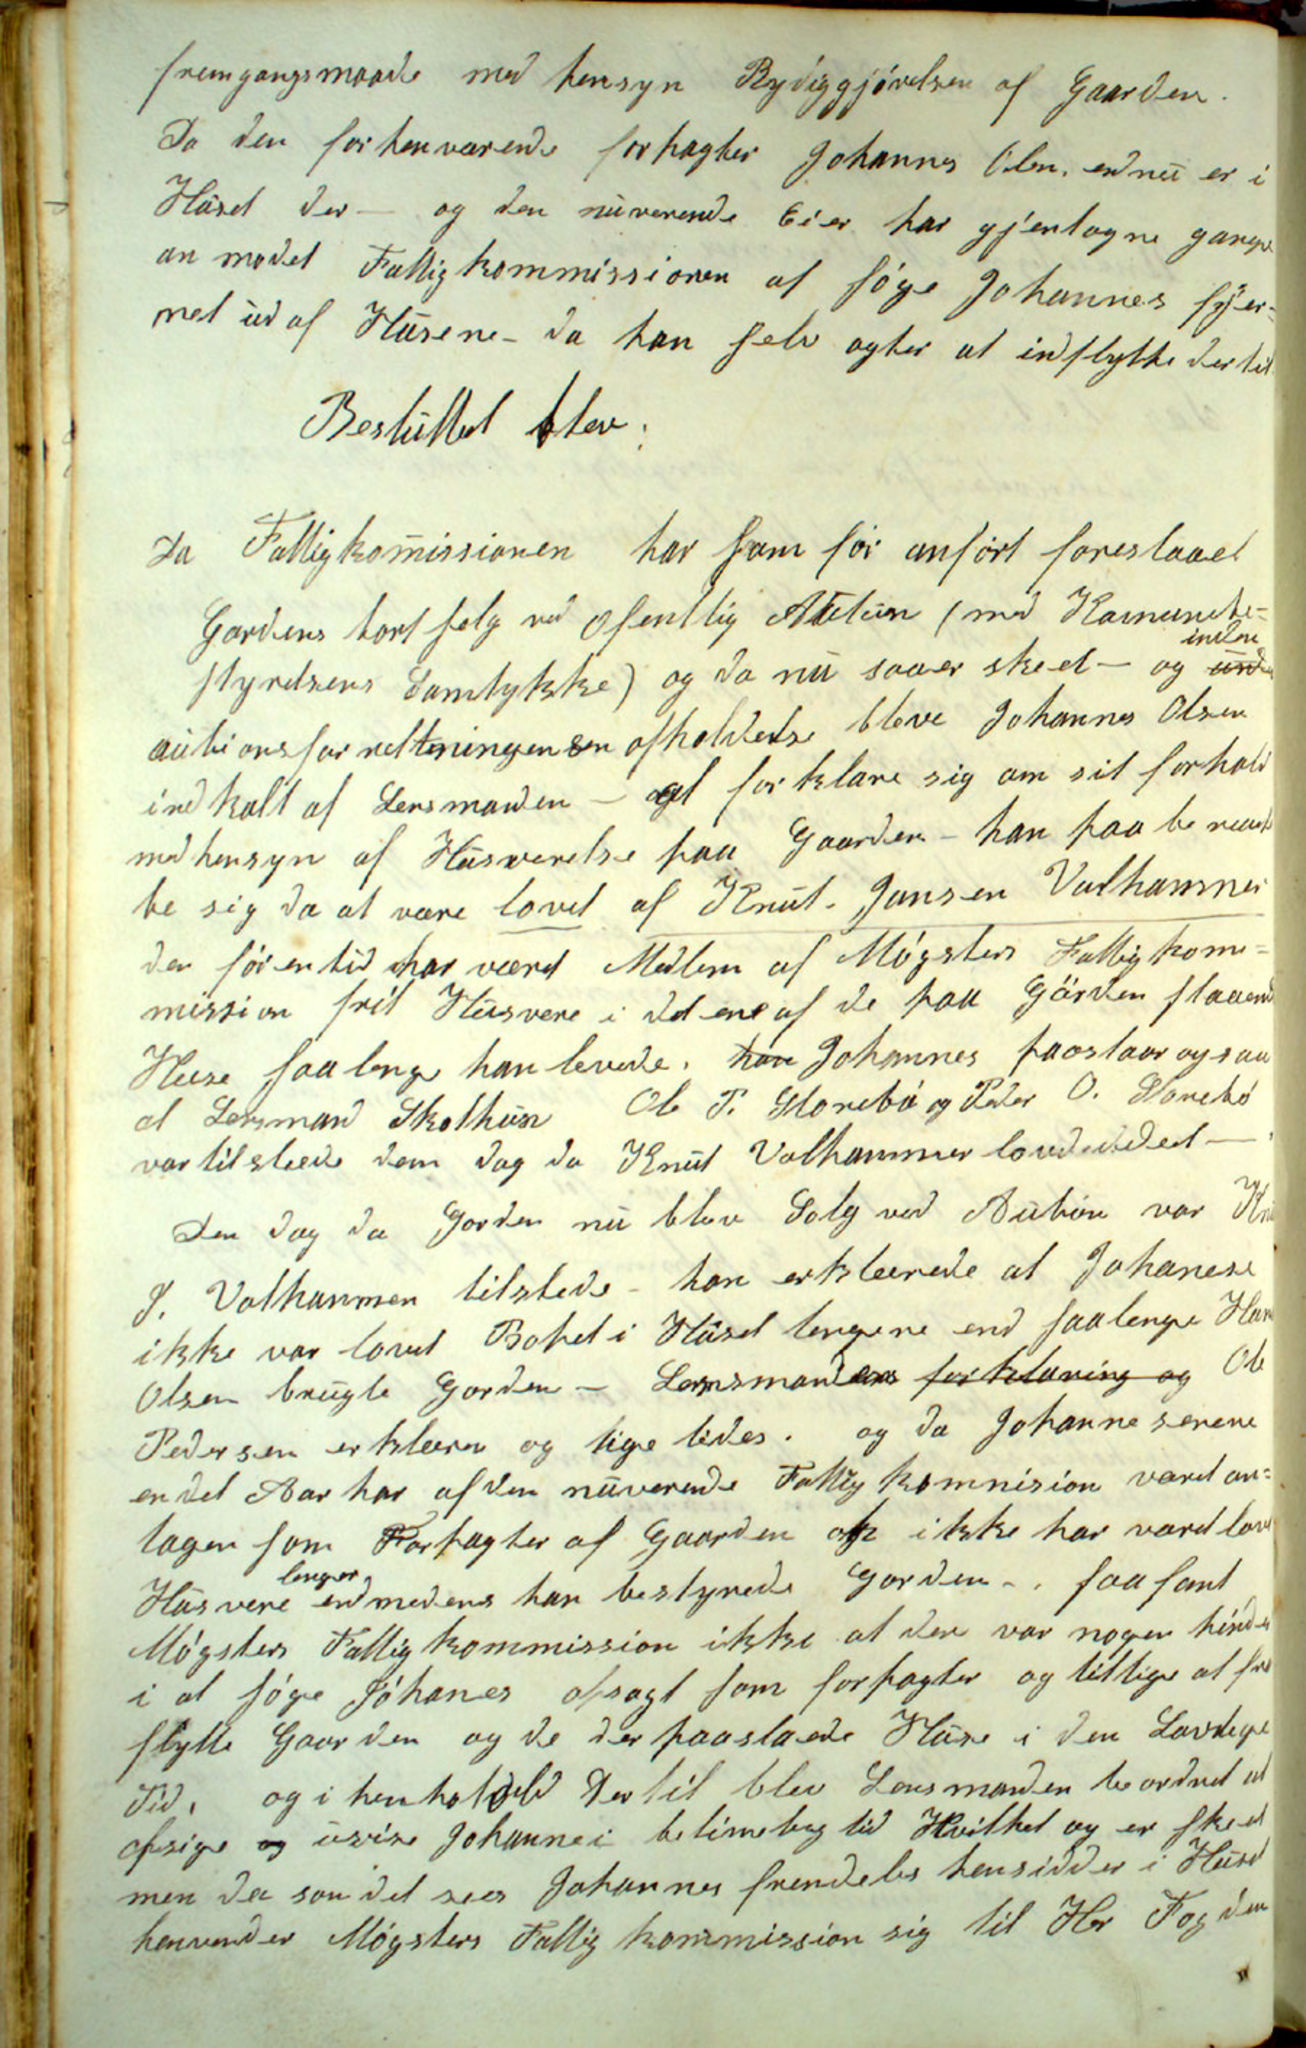 fremgangsmaade med hensyn Rydiggjörelsen af Gaarden.
Da den forhenværende forpagter Johannes Olsn. ednu er i
Huset der — og den nuverende Eier har gjentagne gange
an modet Fattigkommissionen at söge Johannes fjer-
net ud af Husene - da han selv agter at indflytte dertil
Besluttet blev:
Da Fattigkomissionen har som för anfört foreslaaet
Gardens bortselg ved ofentlig Auktion (med Komunebe-
styrelsens Samtykke) og da nu saa er skeet — og inden
auktionsforretteningen en afholdelse bleve Johannes Olsen
indkalt af Lensmanden — at forklare sig om sit forhold
med hensyn af Husverelse paa Gaarden - han paa be raab
te sig da at være lovet af Knut. Jansen Valhammer
der för en tid har været Medlem af Mögsters Fattigkom-
mission frit Husvere i det ene af de paa Gården staaend
Huse saa lenge han levede. han Johannes paastaar ogsaa
at Lensmand Skolhus Ole P. Storebö og Peder O. Storebö
var tilstæde dem dag da Knut Valhammer lovde ded —
Den dag da Gorden nu blev Solg ved Auktion var Knu
J. Valhammen tilstede - han erklærede at Johanese
ikke var lovet Bopel i Huset lengere end saalenge Han
Olsen brugte Gorden — Lensmandens forklaring og Ole
Pedersen erklærer og lige ledes. og da Johannes enere
endel Aar har af den nuverende Fattigkomnision været an-
tagen som Forpagter af Gaarden og ikke har været lov
lenger
Husvere end medens han bestyrede Gorden -. saa fant
Mögsters Fattigkommission ikke at der var nogen hinder
i at söge Jóhanes opsagt som forpagter og tillige at fra
flytte Gaarden og de der paastaaede Huse i den Lovlige
Tid, og i henhold der til blev Lensmanden beordret at
opsige og udvise Johannes i betimelig tid Hvilket og er skeet
men da som det sees Johannes fremdeles hensidder i Huset
henvender Mögsters Fattigkommission sig til Hr Fogden